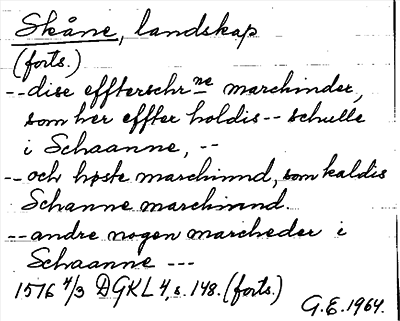 Skåne, landskap
(forts.)
--dise effterschr ne marchinder,
som her effter holdis -- schulle
i Schaanne, --
--och høste marchinnd, som kaldis
Schanne marchinnd.
--andre nogen marcheder i
Schaanne ---
1576 4/3 DGKL 4, s. 148. (forts.)
G.E. 1964.